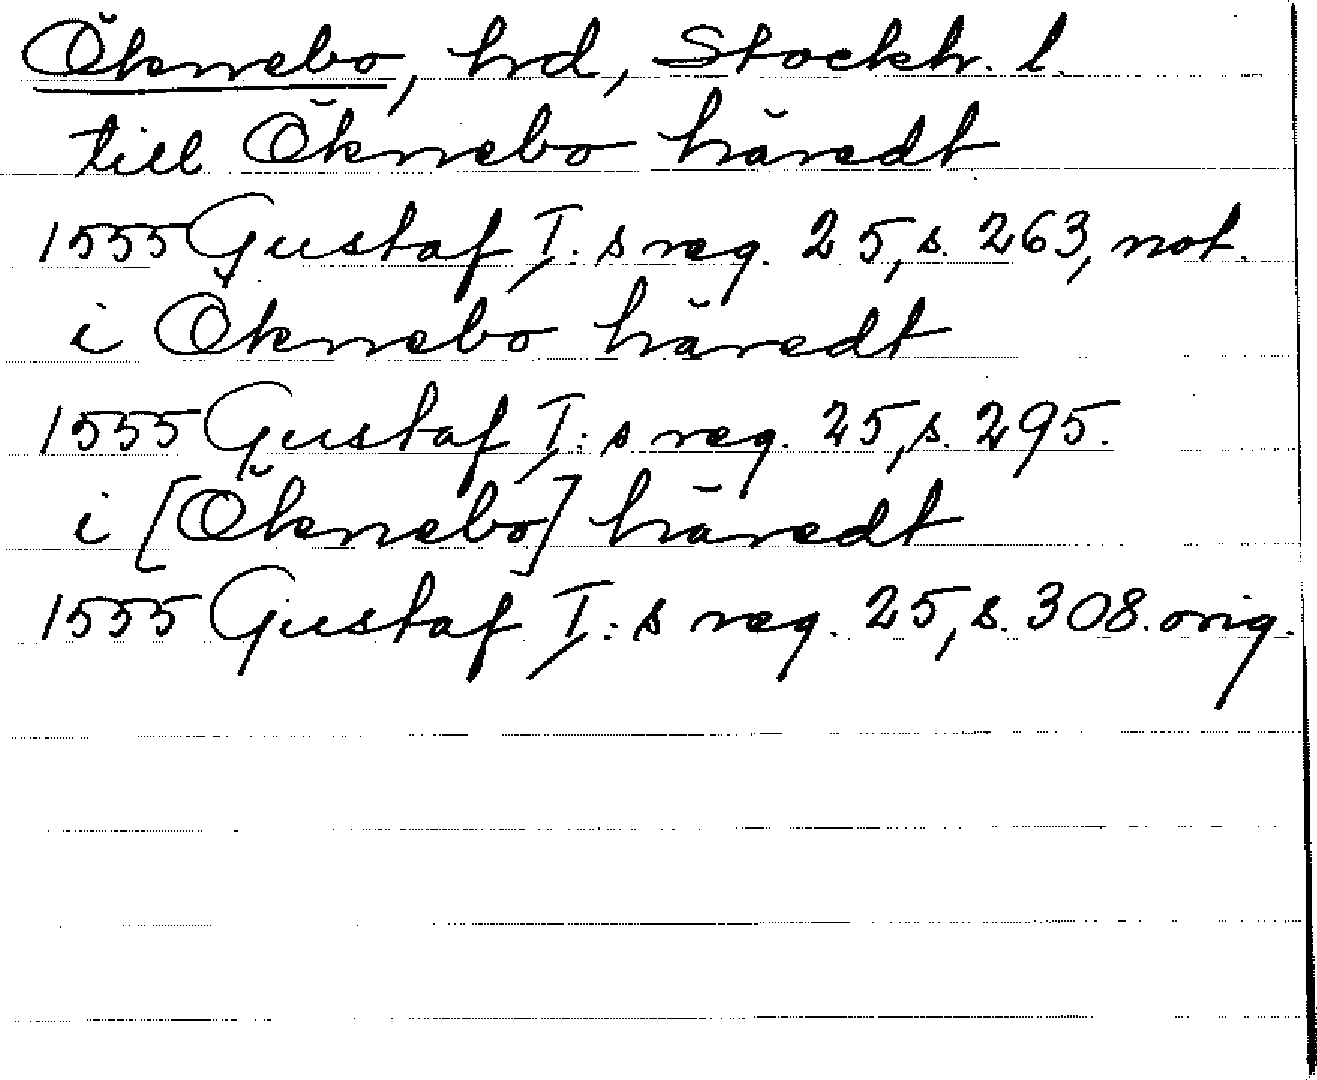 Öknebo, hrd, Stockh. l.
till Öknebo häredt
1555 Gustaf I:s reg. 25, s. 263, not.
i Öknebo häredt
1555 Gustaf I:s reg. 25, s. 295.
i [Öknebo] häredt
1555 Gustaf I:s reg. 25, s. 308. orig.